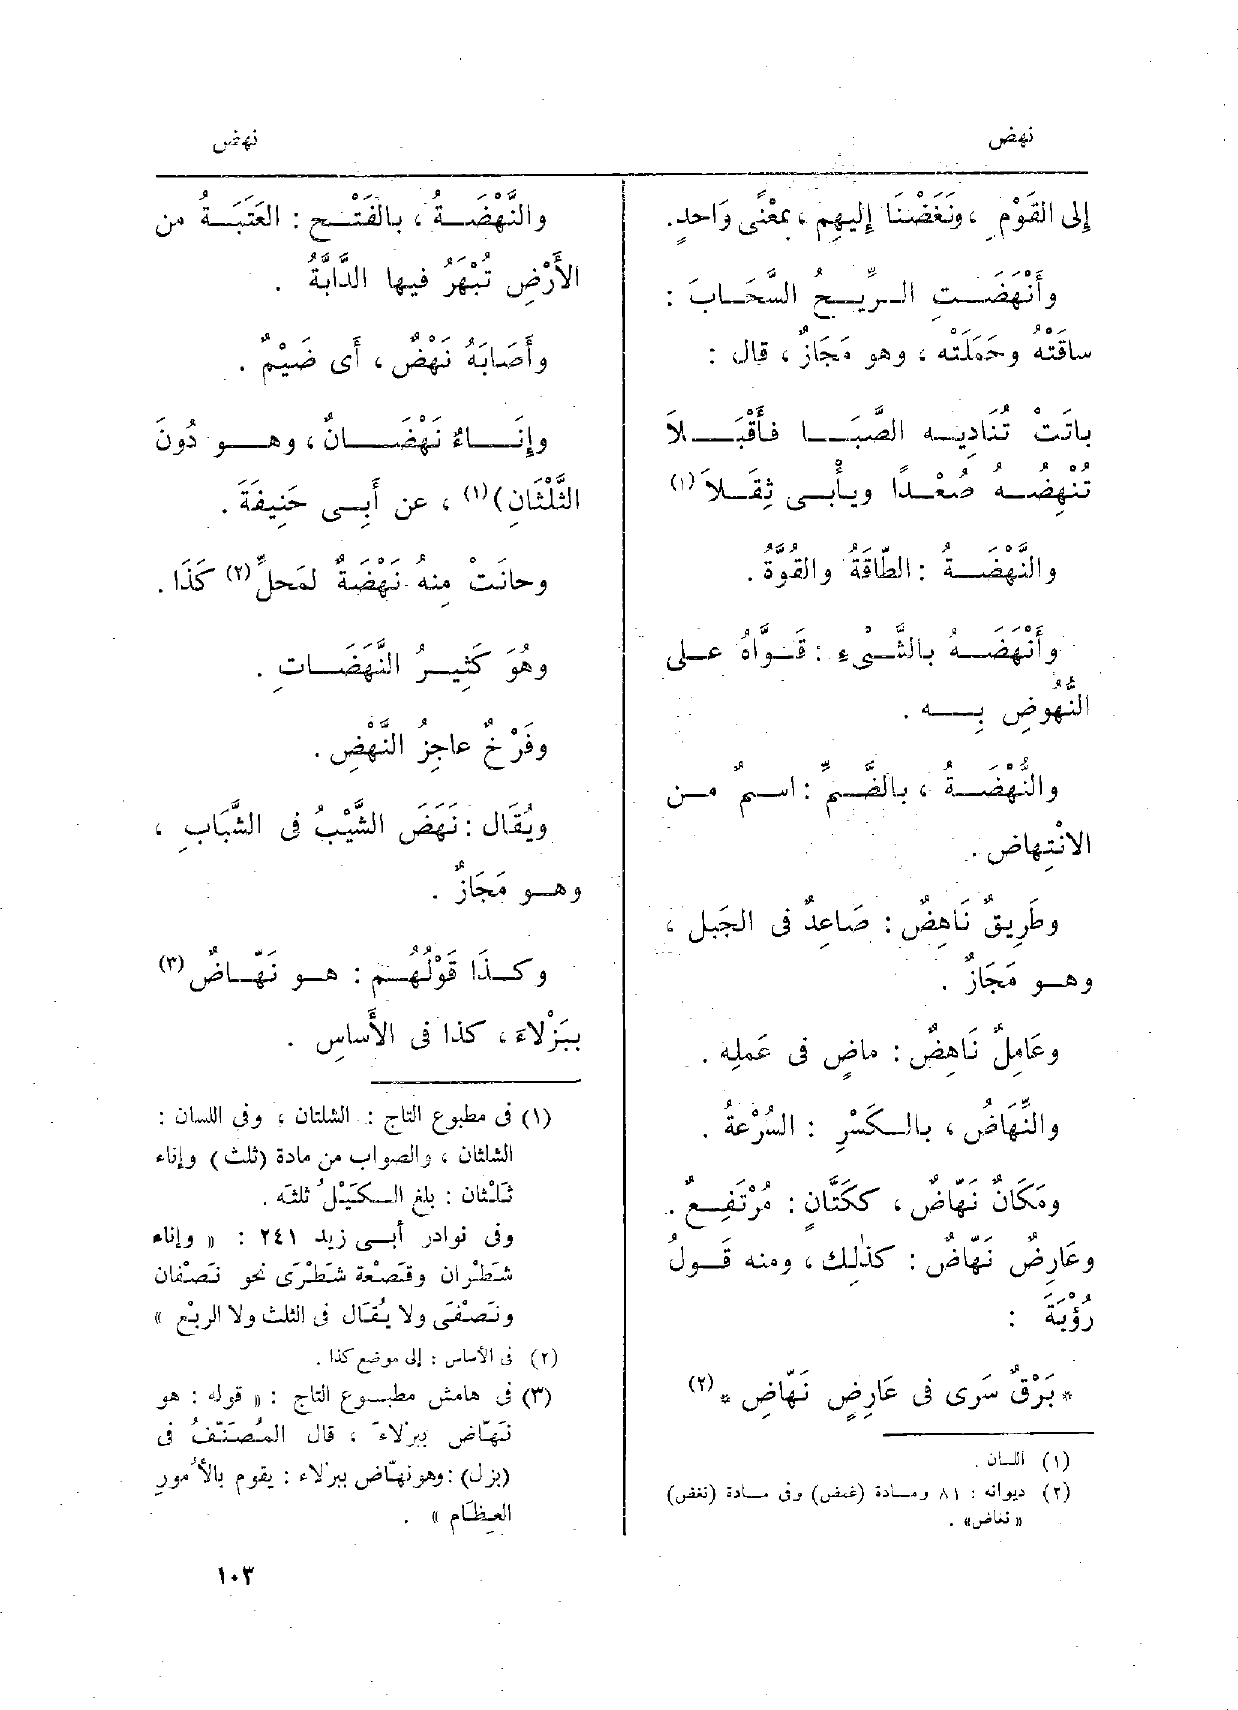 نهض
نهض
إلى القَوْمِ ، ونَغَضْنَا إليهِم ، بمعْنًى وَاحدٍ.
وأَنْهَضَـتِ الـرِّيـحُ السَّحَـابَ :
ساقَتْهُ وحَمَلَتْه ، وهو مَجَازٌ ، قال :
باتَتْ تُنَادِيـه الصَّبَـا فأَقْبَـلاَ
تُنْهِضُـه صُعُـدًا ويـأْبـى ثِقَـلاَ (١)
والنَّهْضَـةُ : الطَّاقَةُ والقُوَّةُ .
وأَنْهَضَـهُ بالشَّـىْءِ : قَـوَّاهُ عـلى
النُّهُوضِ بِـه .
والنُّهْضَـةُ ، بالضَّـمِّ : اسـمٌ مـن
الانْتِهاض .
وطَرِيقٌ نَاهِضٌ : صَاعِدٌ فى الجَبل ،
وهـو مَجَازٌ .
وعَامِلٌ نَاهِضٌ : ماضٍ فى عَملِه .
والنِّهَاضُ ، بالـكَسْرِ : السُّرْعَةُ .
ومَكَانٌ نَهّاضٌ ، ككَتَّانٍ : مُرْتَفِـعٌ .
وعَارِضٌ نَهّاضٌ : كذٰلِك ، ومنه قَـولُ
رُؤْبَةَ :
* بَرْقٌ سَرى فى عَارِضٍ نَهّاضِ * (٢)
(١) اللسان .
(٢) ديوانه : ٨١ ومـادة (غيض) وفى مـادة (نغض)
« نغاض» .
والنَّهْضَـةُ ، بالفَتْـح : العَتَبَـةُ من
الأَرْضِ تُبْهَرُ فيها الدَّابَّةُ .
وأَصَابَهُ نَهْضٌ ، أَى ضَيْمٌ .
وإِنَـاءٌ نَهْضَـانٌ ، وهـو دُونَ
الثَّلْثَانِ) (١) ، عن أَبِـى حَنِيفَةَ .
وحانَتْ مِنهُ نَهْضَةٌ لمَحلِّ (٢) كَذَا .
وهُوَ كَثِيـرُ النَّهَضَـاتِ .
وفَرْخٌ عاجِزُ النَّهْضِ .
ويُقَال : نَهَضَ الشَّيْبُ فى الشَّبَابِ ،
وهـو مَجَازٌ .
وكـذَا قَوْلُهُـم : هـو نَهّـاضٌ (٣)
بِبَزْلاَءَ ، كذا فى الأَساسِ .
(١) فى مطبوع التاج : الشلتان ، وفى اللسان :
الشلثان ، والصواب من مادة (ثلث) وإناء
ثَلْثان : بلغ الـكَيْلُ ثلثَه .
وفى نوادر أَبـى زيد ٢٤١ : « وإناء
شَطْران وقَصْعة شَطْرَى نحو نَصْفان
ونَصْفَى ولا يُقال فى الثلث ولا الربْع »
(٢) فى الأساس : إلى موضع كذا .
(٣) فى هامش مطبـوع التاج : « قوله : هو
نَهّاض ببزلاءَ ، قال المُصَنّفُ فى
(بزل) : وهو نهّاض ببزلاء : يقوم بالأُمورِ
العِظَام » .
١٠٣